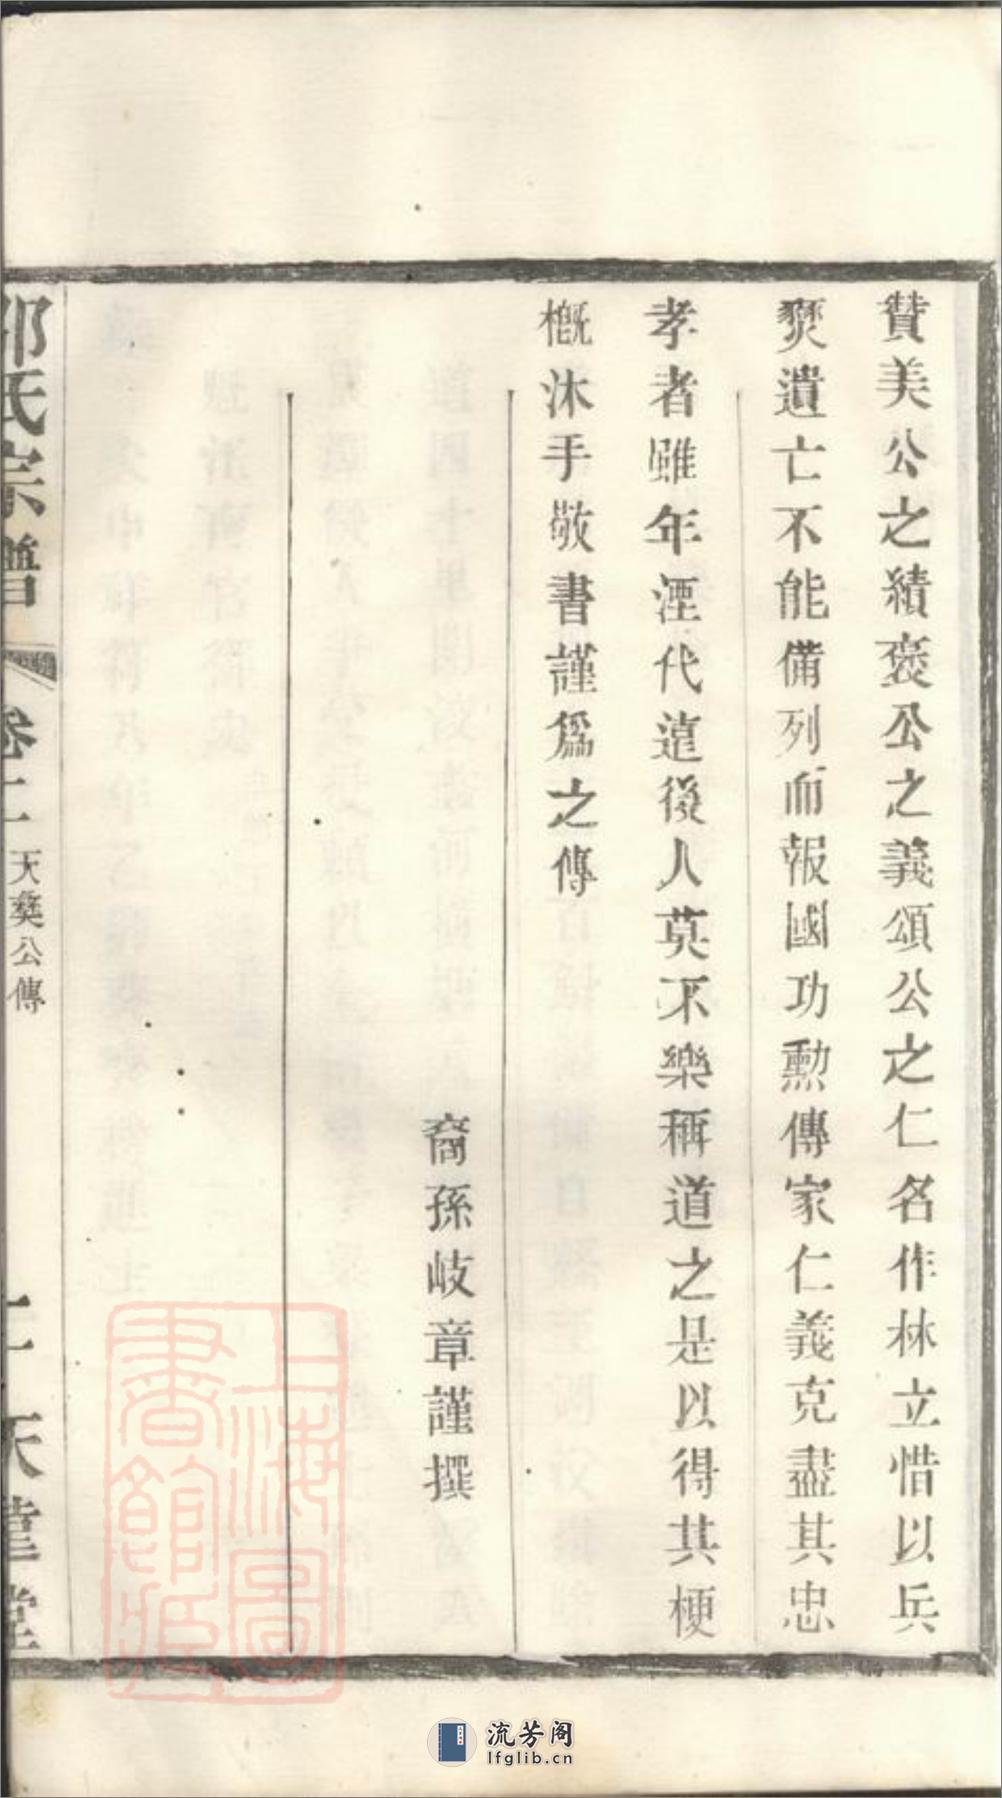 贊美公之績褒公之義頌公之仁名作林立惜以兵
燹遺亡不能備列而報國功勳傳家仁義克盡其忠
孝者雖年湮代遠後人莫不樂稱道之是以得其梗
概沐手敬書謹爲之傳
裔孫岐章謹撰
氏宗譜
卷二 天爕公傳
堂
上海圖書館藏
流芳阁
lfglib.cn